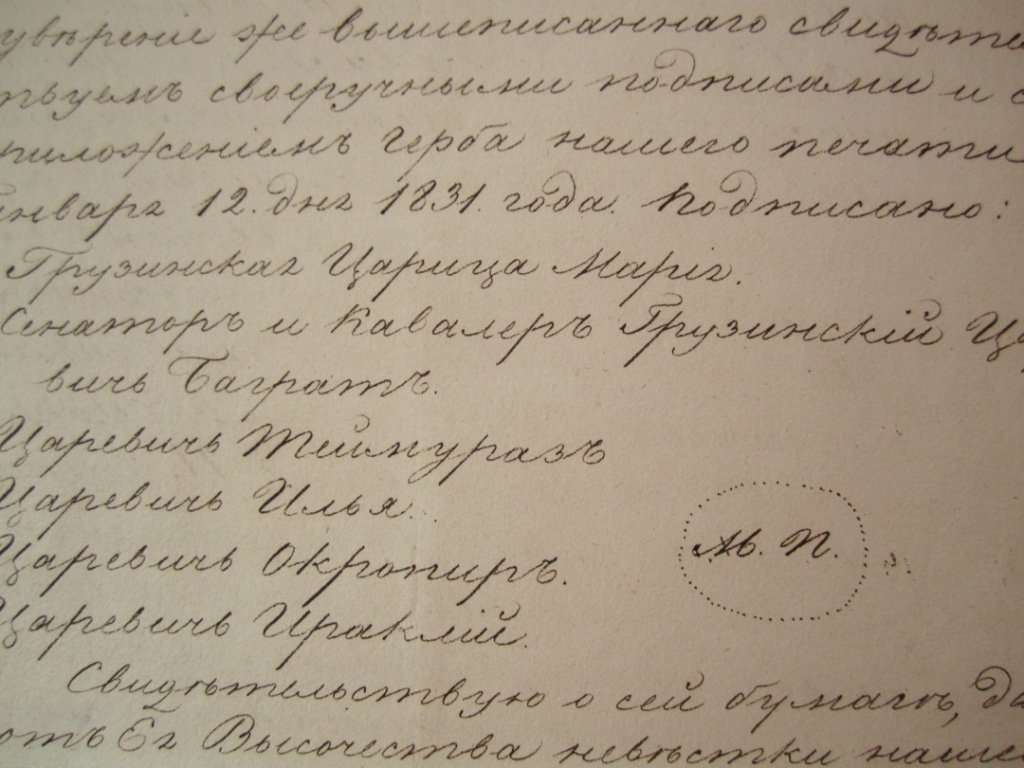 увѣреніе же вышеписаннаго свидѣте
тьуемъ своеручными подписами и с
риложеніемъ герба нашего печати
Января 12. дня 1831. года. Подписано:
Грузинская Царица Марія.
Сенаторъ и Кавалеръ Грузинскій Ца
вичь Багратъ.
Царевичь Теймуразъ
Царевичь Илья.
М. П.
Царевичь Окропиръ.
Царевичь Ираклій.
Свидѣтельствую о сей бумагѣ, да
отъ Ея Высочества невѣстки наше